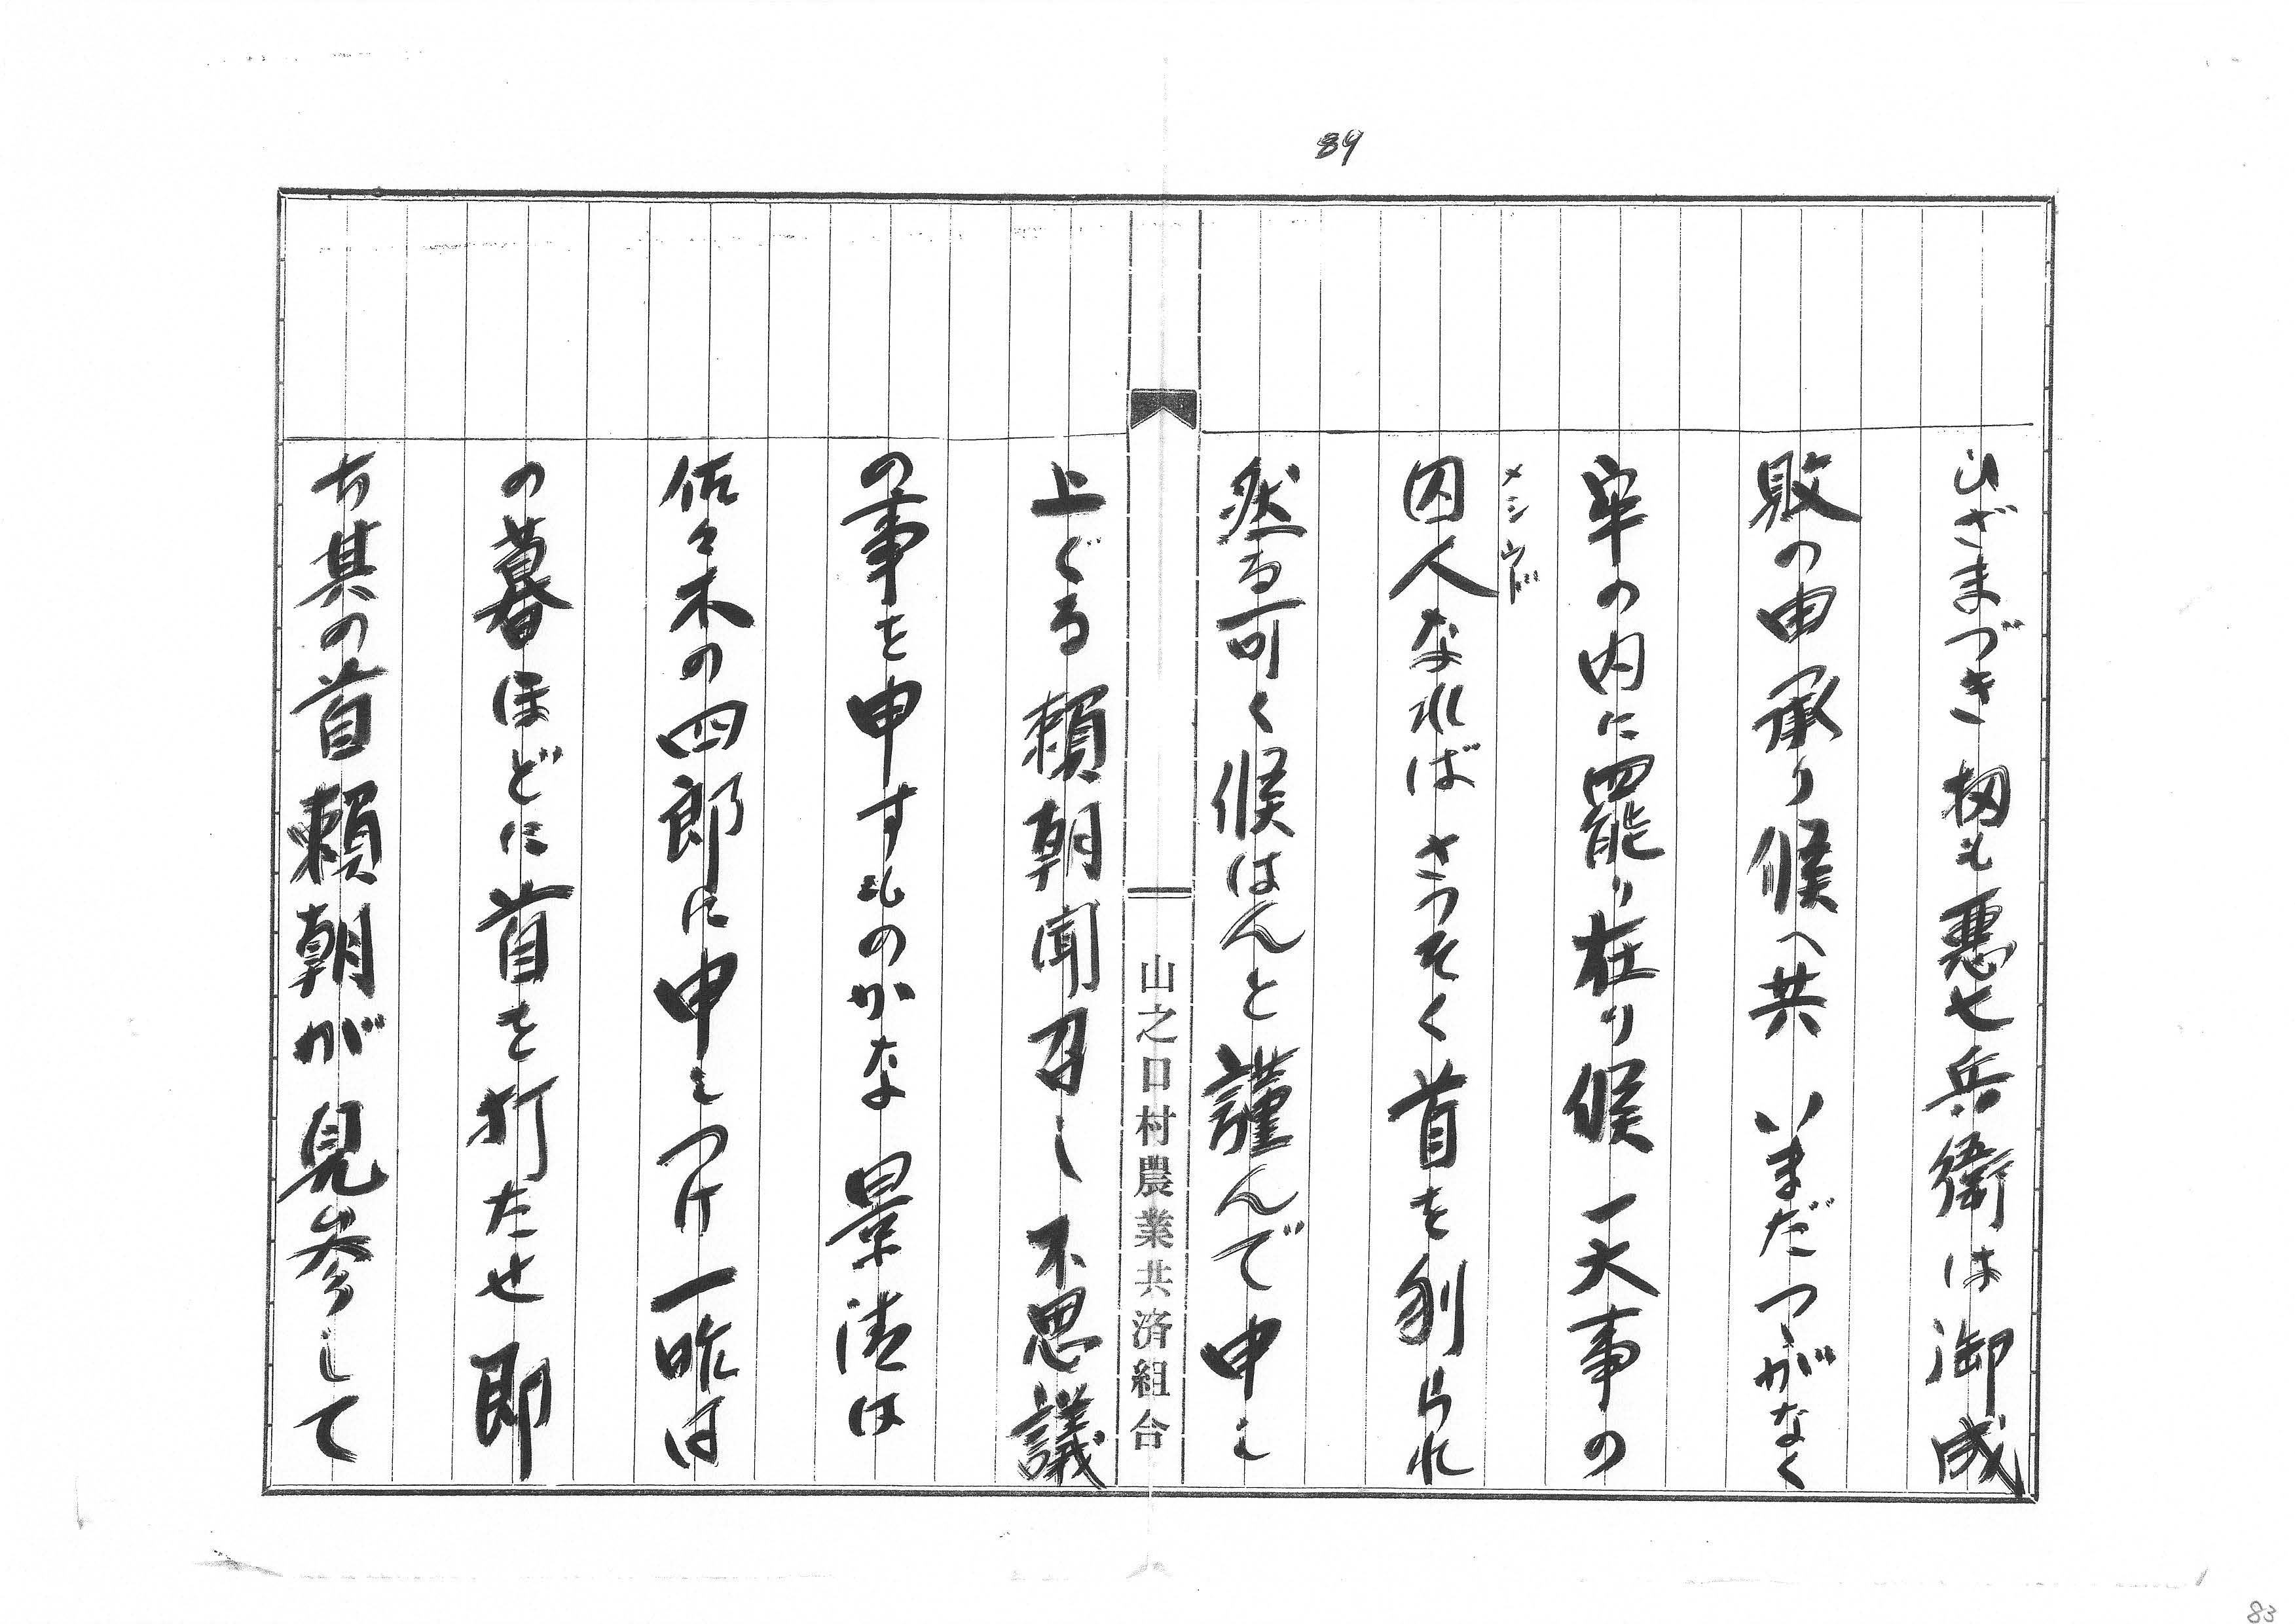 89
ひざまづき扨も悪七兵衛は御成
敗の由承り候へ共いまだつゝがなく
牢の内に罷り在り候一大事の
メシウド
囚人なればさつそく首を刎られ
然る可く候はんと謹んで申し
山之口村農業共済組合
上ぐる頼朝聞召し不思議
の事を申すものかな景清は
佐々木の四郎に申しつけ一昨日
の暮ほどに首を打たせ即
ち其の首頼朝が見参して
83